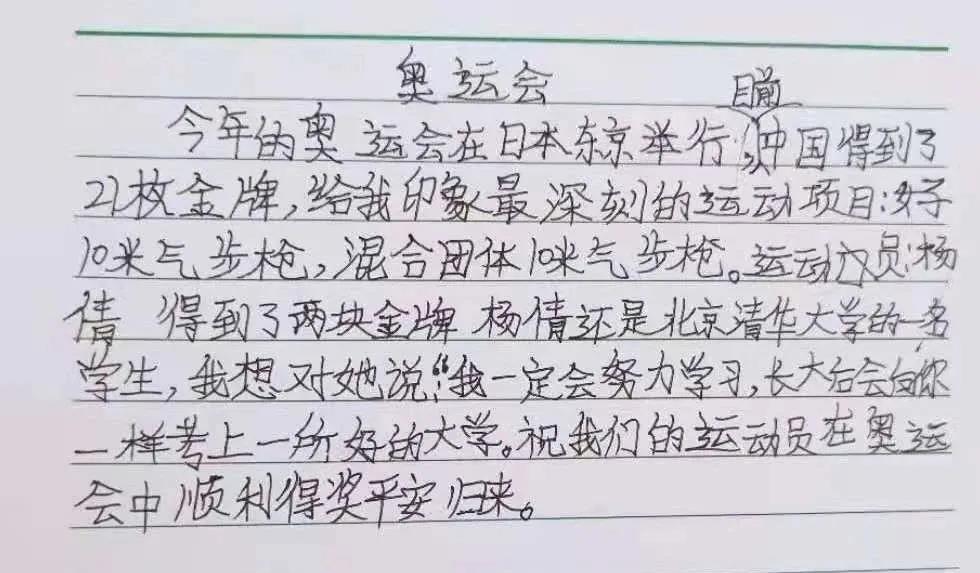 奥运会
今年的奥运会在日本东京举行,目前中国得到了
21枚金牌,给我印象最深刻的运动项目:女子
10米气步枪,混合团体10米气步枪。运动员:杨
倩 得到了两块金牌 杨倩还是北京清华大学的一名
学生,我想对她说:“我一定会努力学习,长大后会向你
一样考上一所好的大学。祝我们的运动员在奥运
会中顺利得奖平安归来。